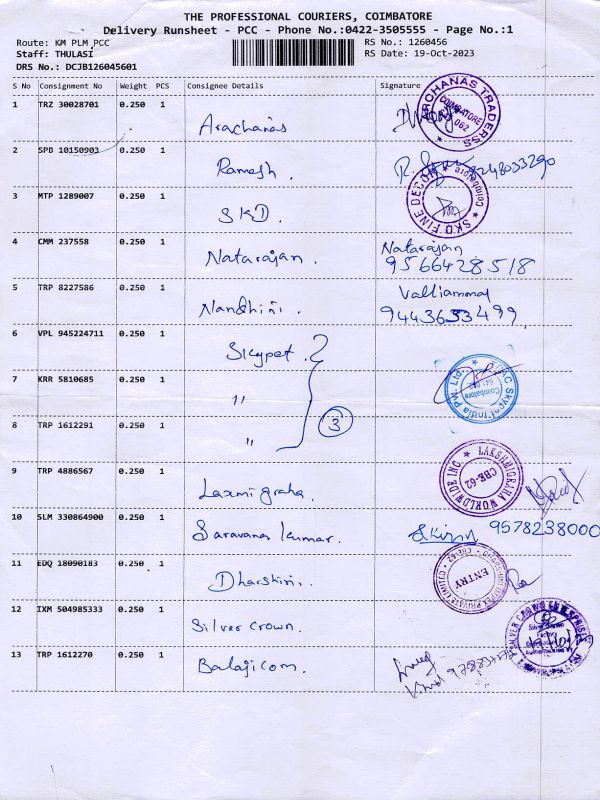 THE PROFESSIONAL COURIERS, COIMBATORE
Delivery Runsheet - PCC - Phone No.:0422-3505555 - Page No.:1
Route: KM PLM,PCC RS No.: 1260456
Staff: THULASI RS Date: 19-Oct-2023
DRS No.: DCJB126045601
S No Consignment No Weight PCS Consignee Details Signature
1 TRZ 30028701 0.250 1 Arachanas ARCHANAS TRADERSS COIMBATORE 062
2 SPB 10150903 0.250 1 Ramesh. 9248033290
3 MTP 1289007 0.250 1 SKD. SKD FINE DECOR Coimbatore
4 CMM 237558 0.250 1 Natarajan. Natarajan
9566428518
5 TRP 8227586 0.250 1 Nandhini. Valliammal
9443633499
6 VPL 945224711 0.250 1 Skypet.
7 KRR 5810685 0.250 1 " Skypet India Pvt. Ltd. Coimbatore
8 TRP 1612291 0.250 1 " 3
9 TRP 4886567 0.250 1 Laxmi graha. LAKSHMIGRAHA WORLDWIDE INC CBE-62
10 SLM 330864900 0.250 1 Saravana kumar. 9578238000
11 EDQ 18090183 0.250 1 Dharshini. PRIVATE LIMITED ENTRY
12 IXM 504985333 0.250 1 Silver crown. SILVER CROWN ENTERPRISES
13 TRP 1612270 0.250 1 Balaji com.